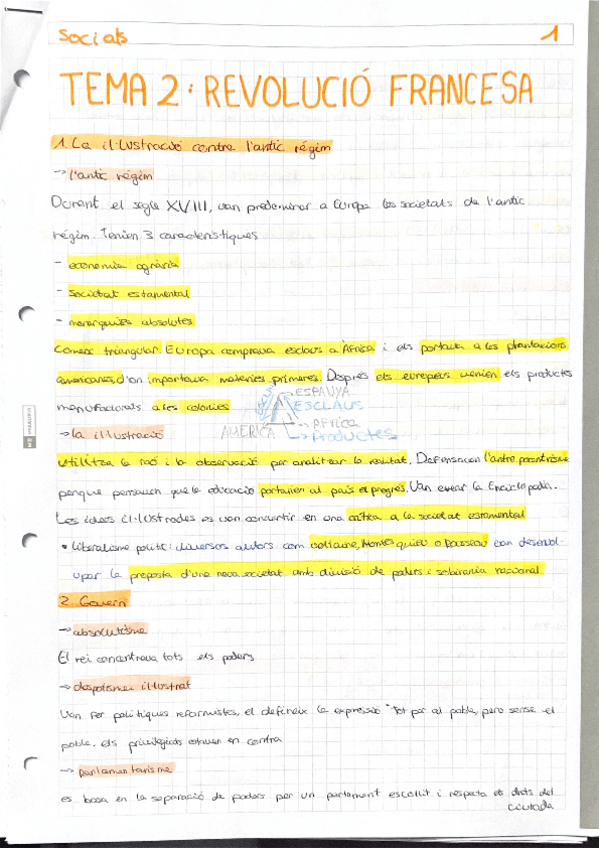 Socials 1
TEMA 2: REVOLUCIÓ FRANCESA
1. La il·lustració contra l'antic règim
→ l'antic règim
Durant el segle XVIII, van predominar a Europa les societats de l'antic
règim. Tenien 3 característiques
- economia agrària
- societat estamental
- monarquies absolutes
Comerç triangular. Europa comprava esclaus a Àfrica i els portava a les plantacions
americanes, d'on importava matèries primeres. Després els europeus venien els productes
manufacturats a les colònies
ESPANYA
ESCLAUS
Africa
AMERICA
Productes
→ la il·lustració
Utilitza la raó i la observació per analitzar la realitat. Defensaven l'antropocentrisme
perque pensaven que la educació portarien al país el progrés. Van crear la Enciclopèdia.
Les idees il·lustrades es van convertir en una crítica a la societat estamental
• Liberalisme polític: diversos autors com voltaine, Montesquieu o Rousseau van desenvol-
upar la proposta d'una nova societat amb divisió de poders i sobirania nacional
2. Govern
→ absolutisme
El rei concentrava tots els poders
→ despotisme il·lustrat
Van fer polítiques reformistes, el defineix la expressió "Tot per al poble, però sense el
poble. els privilegiats estaven en contra
→ parlamentarisme
es basa en la separació de poders per un parlament escollit i respecta els drets del
ciutada